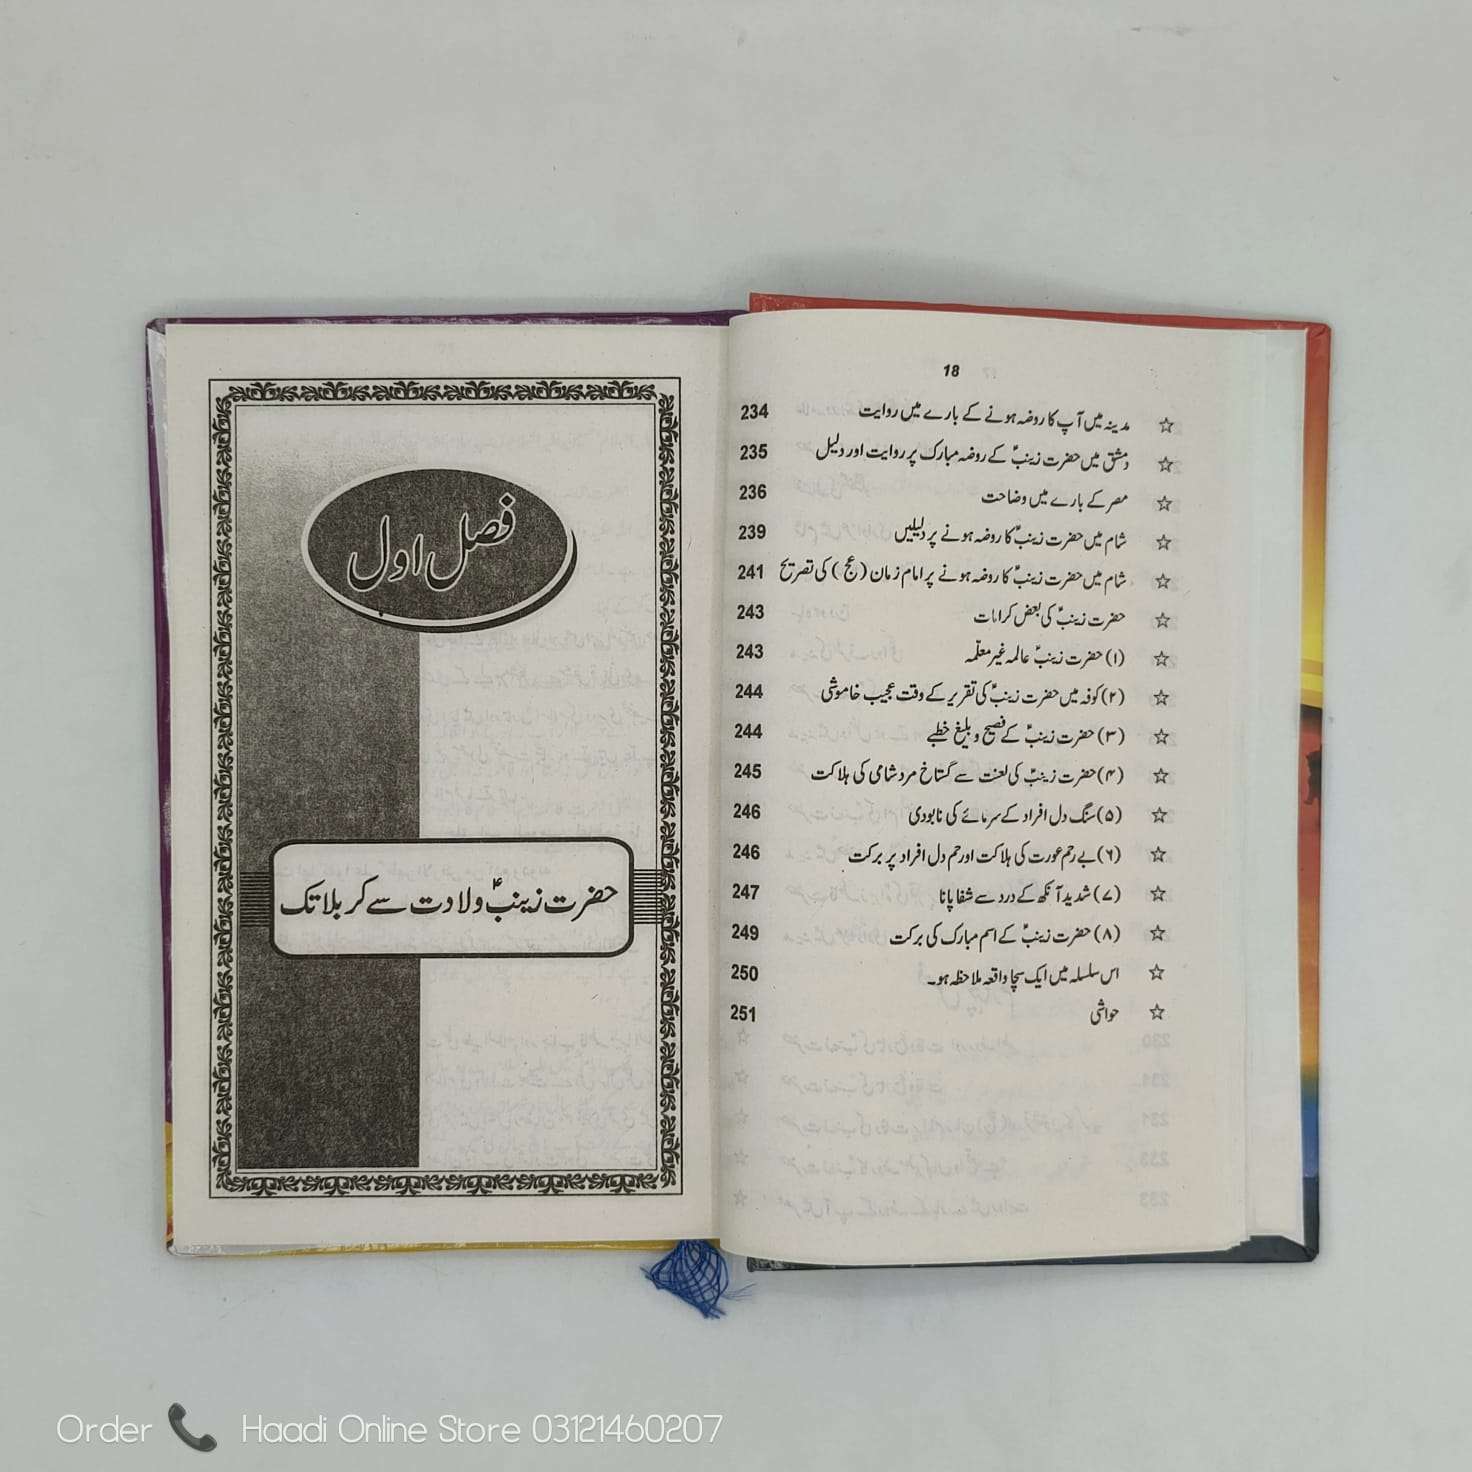 18
☆ مدینہ میں آپ کا روضہ ہونے کے بارے میں روایت 234
☆ دمشق میں حضرت زینبؑ کے روضہ مبارک پر روایت اور دلیل 235
☆ مصر کے بارے میں وضاحت 236
☆ شام میں حضرت زینبؑ کا روضہ ہونے پر دلیلیں 239
☆ شام میں حضرت زینبؑ کا روضہ ہونے پر امام زمان (عج) کی تصریح 241
☆ حضرت زینبؑ کی بعض کرامات 243
☆ (۱) حضرت زینبؑ عالمہ غیر معلّمہ 243
☆ (۲) کوفہ میں حضرت زینبؑ کی تقریر کے وقت عجیب خاموشی 244
☆ (۳) حضرت زینبؑ کے فصیح و بلیغ خطبے 244
☆ (۴) حضرت زینبؑ کی لعنت سے گستاخ مرد شامی کی ہلاکت 245
☆ (۵) سنگ دل افراد کے سرمائے کی نابودی 246
☆ (۶) بے رحم عورت کی ہلاکت اور رحم دل افراد پر برکت 246
☆ (۷) شدید آنکھ کے درد سے شفا پانا 247
☆ (۸) حضرت زینبؑ کے اسم مبارک کی برکت 249
☆ اس سلسلہ میں ایک سچا واقعہ ملاحظہ ہو۔ 250
☆ حواشی 251
فصل اول
حضرت زینبؑ ولادت سے کربلا تک
Order Haadi Online Store 03121460207